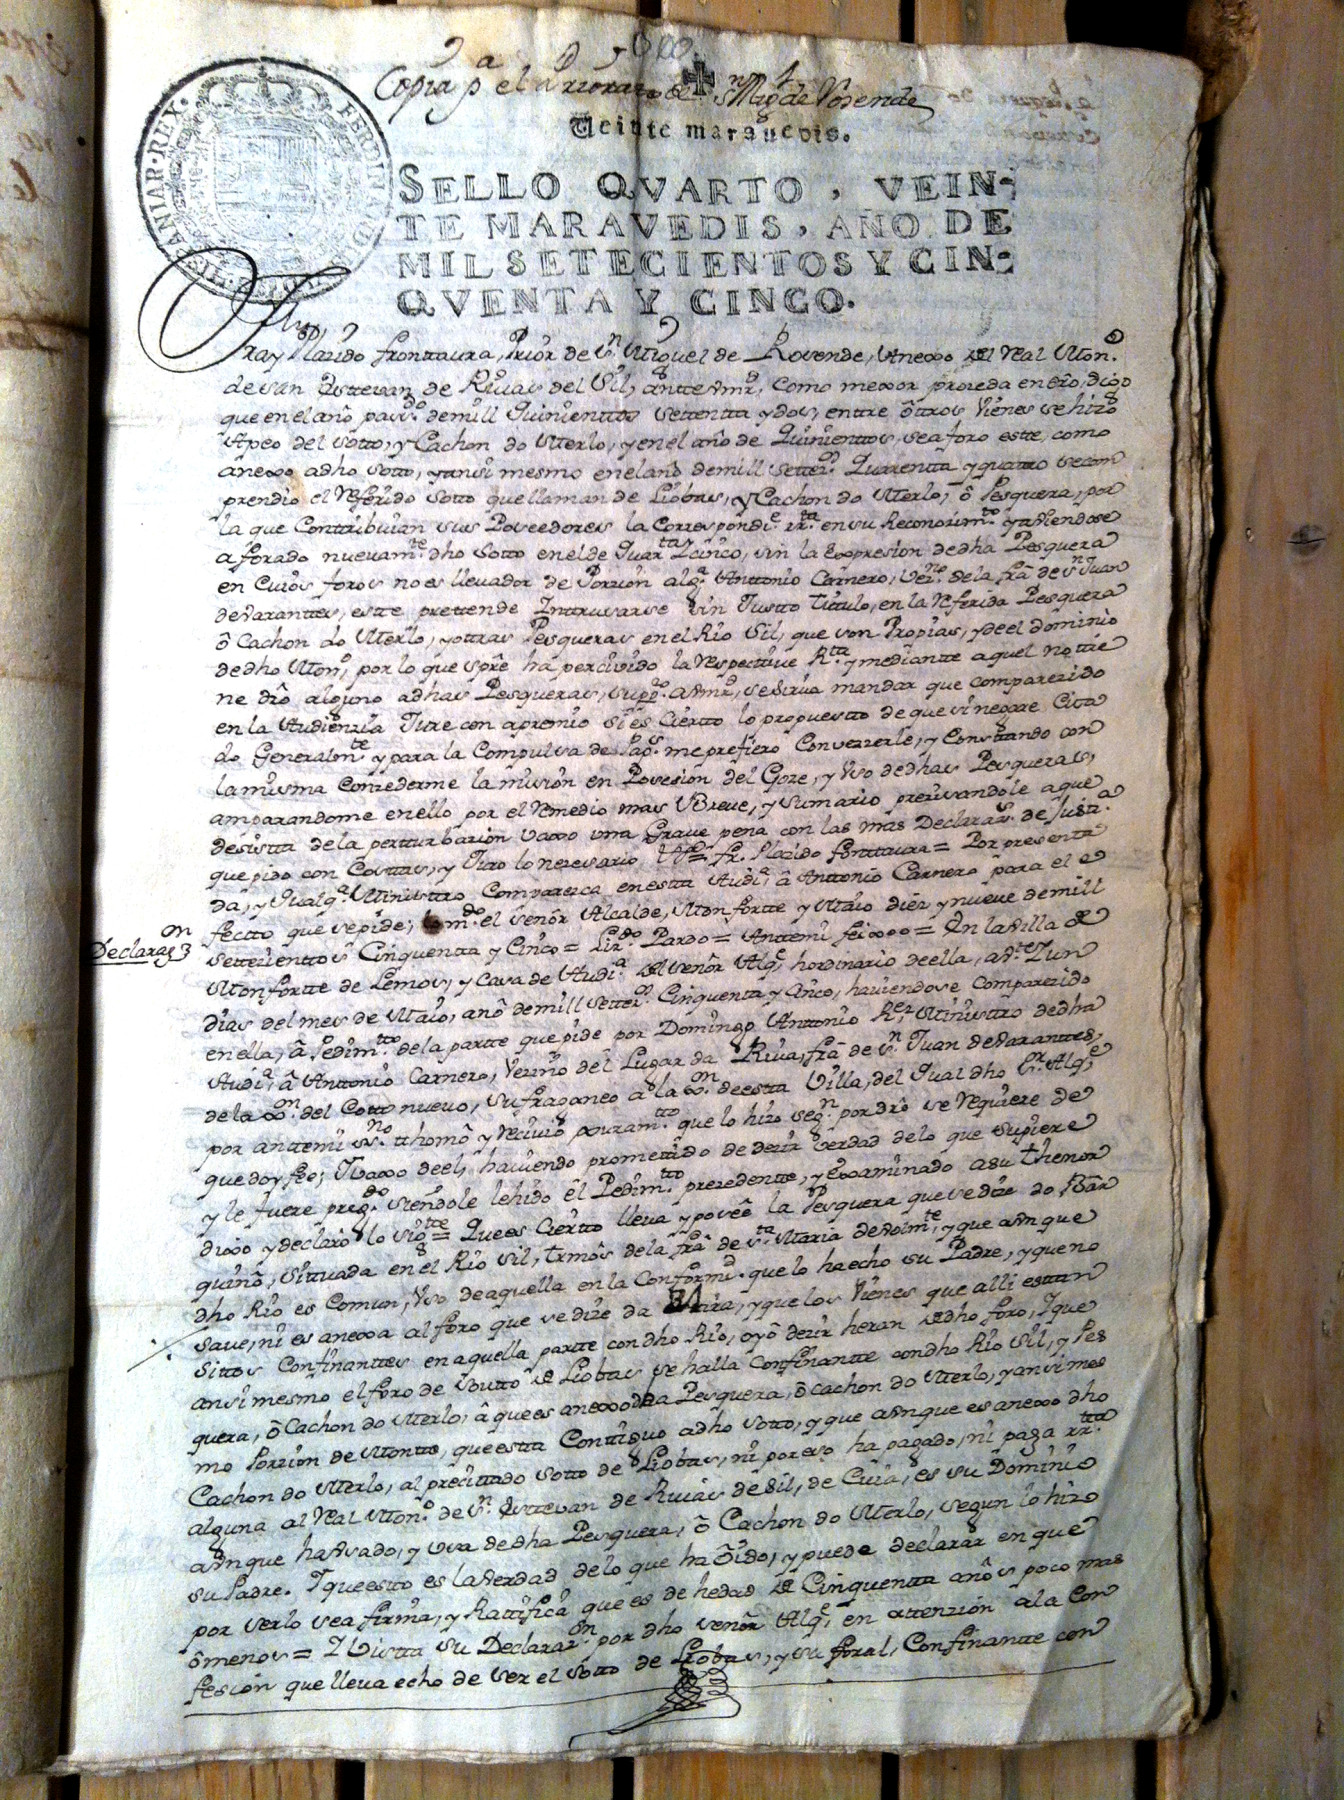 Copia pª el Priorato de Sn Migl de Rosende
Veinte marauedis.
SELLO QVARTO, VEIN-
TE MARAVEDIS, AÑO DE
MIL SETECIENTOS Y CIN-
QVENTA Y CINCO.
HISPANIAR·REX· FERDINANDUS
Fray Plazido frontaura, Prior de Sn Miguel de Rosende, Anexo del Real Mono
de san Esttevan de Riuas del Sil, antte Vmd, como mexor prozeda en dro, digo
que en el año pasdo de mill Quinienttos settentta y dos, entre ôtros Vienes se hizo
Apeo del sotto, y Cachon do Merlo, y en el año de Quinienttos, se aforo este, como
anexo a dho sotto, y ansi mesmo en el año de mill setteros Quarentta y quattro se com
prendio el Referido sotto que llaman de Liobas, y Cachon do Merlo, ô Pesquera, por
la que Contribuian sus Poseedores la Correspondte rrta en su Reconozimto y aviendose
aforado nuevamte dho Sotto en el de Quarta y cinco, sin la Expresion de dha Pesquera
en Cuios foros no es llevador de Porzion alga Anttonio Carnero, Vezno de la fra de Sn Juan
de Varanttes, este prettende Inttrusarse sin Justto titulo, en la Referida Pesquera
ô Cachon do Merlo, y ottras Pesqueras en el Rio Sil, que son Propias, y de el dominio
de dho Mono, por lo que spre ha percivido la respective Rta y mediantte aquel no tie
ne dro alguno a dhas Pesqueras, suppco a Vmd, se sirua mandar que comparezido
en la Audienzia Jure con apremio si es Ciertto lo propuestto de que si negare Cita
do Generalmte y para la Compulsa de Pagos me prefiero Convezerle, y Consttando con
la misma Conzederme la mision en Posesion del Goze, y Vso de dhas Pesqueras,
amparandome en ello por el Remedio mas Vreue, y sumario prezisandole a que
desistta de la pertturbazion vaxo una Graue pena con las mas Declarazs de Justa
que pido con Costtas, y Juro lo nezesario, = fr. Plazido fontaura = Por presenta
da, y Qualqa Ministtro Comparezca en estta Audia â Anttonio Carnero para el e
fectto que se pide; mdo el señor Alcalde, Monfortte y Maio diez y nueve de mill
settezienttos Cinquentta y Cinco = Lizdo Pardo = Anttemi feixoo = En la Villa de
Declarazon
Monfortte de Lemos, y Casa de Audia del señor Alqe hordinario de ella, a
dias del mes de Maio, año de mill setteros Cinquentta y Cinco, hauiendose Comparezido
en ella, â Pedimto de la partte que pide por Domingo Anttonio Rez Ministtro de dha
Audia â Anttonio Carnero, Vezino del Lugar da Riua, fra de Sn Juan de Varanttes,
de la Jon del Cotto nuevo, sufraganeo a la Jon de estta Villa, del Qual dho Sr Alqe
por anttemi sno thomô y Reciuiô xuramto que lo hizo segn por dro se Requiere de
que doy fee; Vaxo de el, hauiendo promettido de dezir Verdad de lo que supiere
y le fuere pregdo siendole lehido êl Pedimto prezedentte, y Examinado a su thenor
dixo y declarô lo sigtte = Que es Ciertto lleva y poseê la Pesquera que se dize do Bar
quino, sittuada en el Rio Sil, trmos de la fra de Sta Maria de Volmte, y que aVnque
dho Rio es Comun, Vso de aquella en la Conformd que lo ha echo su Padre, y que no
save, ni es anexa al foro que se dize da Maira, y que los Vienes que alli esttan
Sittos Confinanttes en aquella partte con dho Rio, oyô dezir heran de dho foro, Y que
ansi mesmo el foro de Soutto de Liobas se halla Confinantte con dho Rio Sil, y Pes
quera, ô Cachon do Merlo, â que es anexo dha Pesquera, ô Cachon do Merlo, y ansi mes
mo Porzion de Montte, que estta Contiguo a dho sotto, y que aVnque es anexo dho
Cachon do Merlo, al prezittado sotto de Liobas, ni por eso ha pagado, ni paga rrta
alguna al Real Mono de Sn Esttevan de Riuas de Sil, de Cuia, es su Dominio
aVnque ha Vsado, y vsa de dha Pesquera, ô Cachon do Merlo, segun lo hizo
su Padre. Y que estto es la Verdad de lo que ha ôido, y puede declarar en que
por serlo se afirma, y Rattifica que es de hedad de Cinquentta años poco mas
ô menos = Y Vistta su Declarazon por dho señor Alqe en attenzion a la Con
fesion que lleua echo de ser el Sotto de Liobas, y su foral, Confinantte con